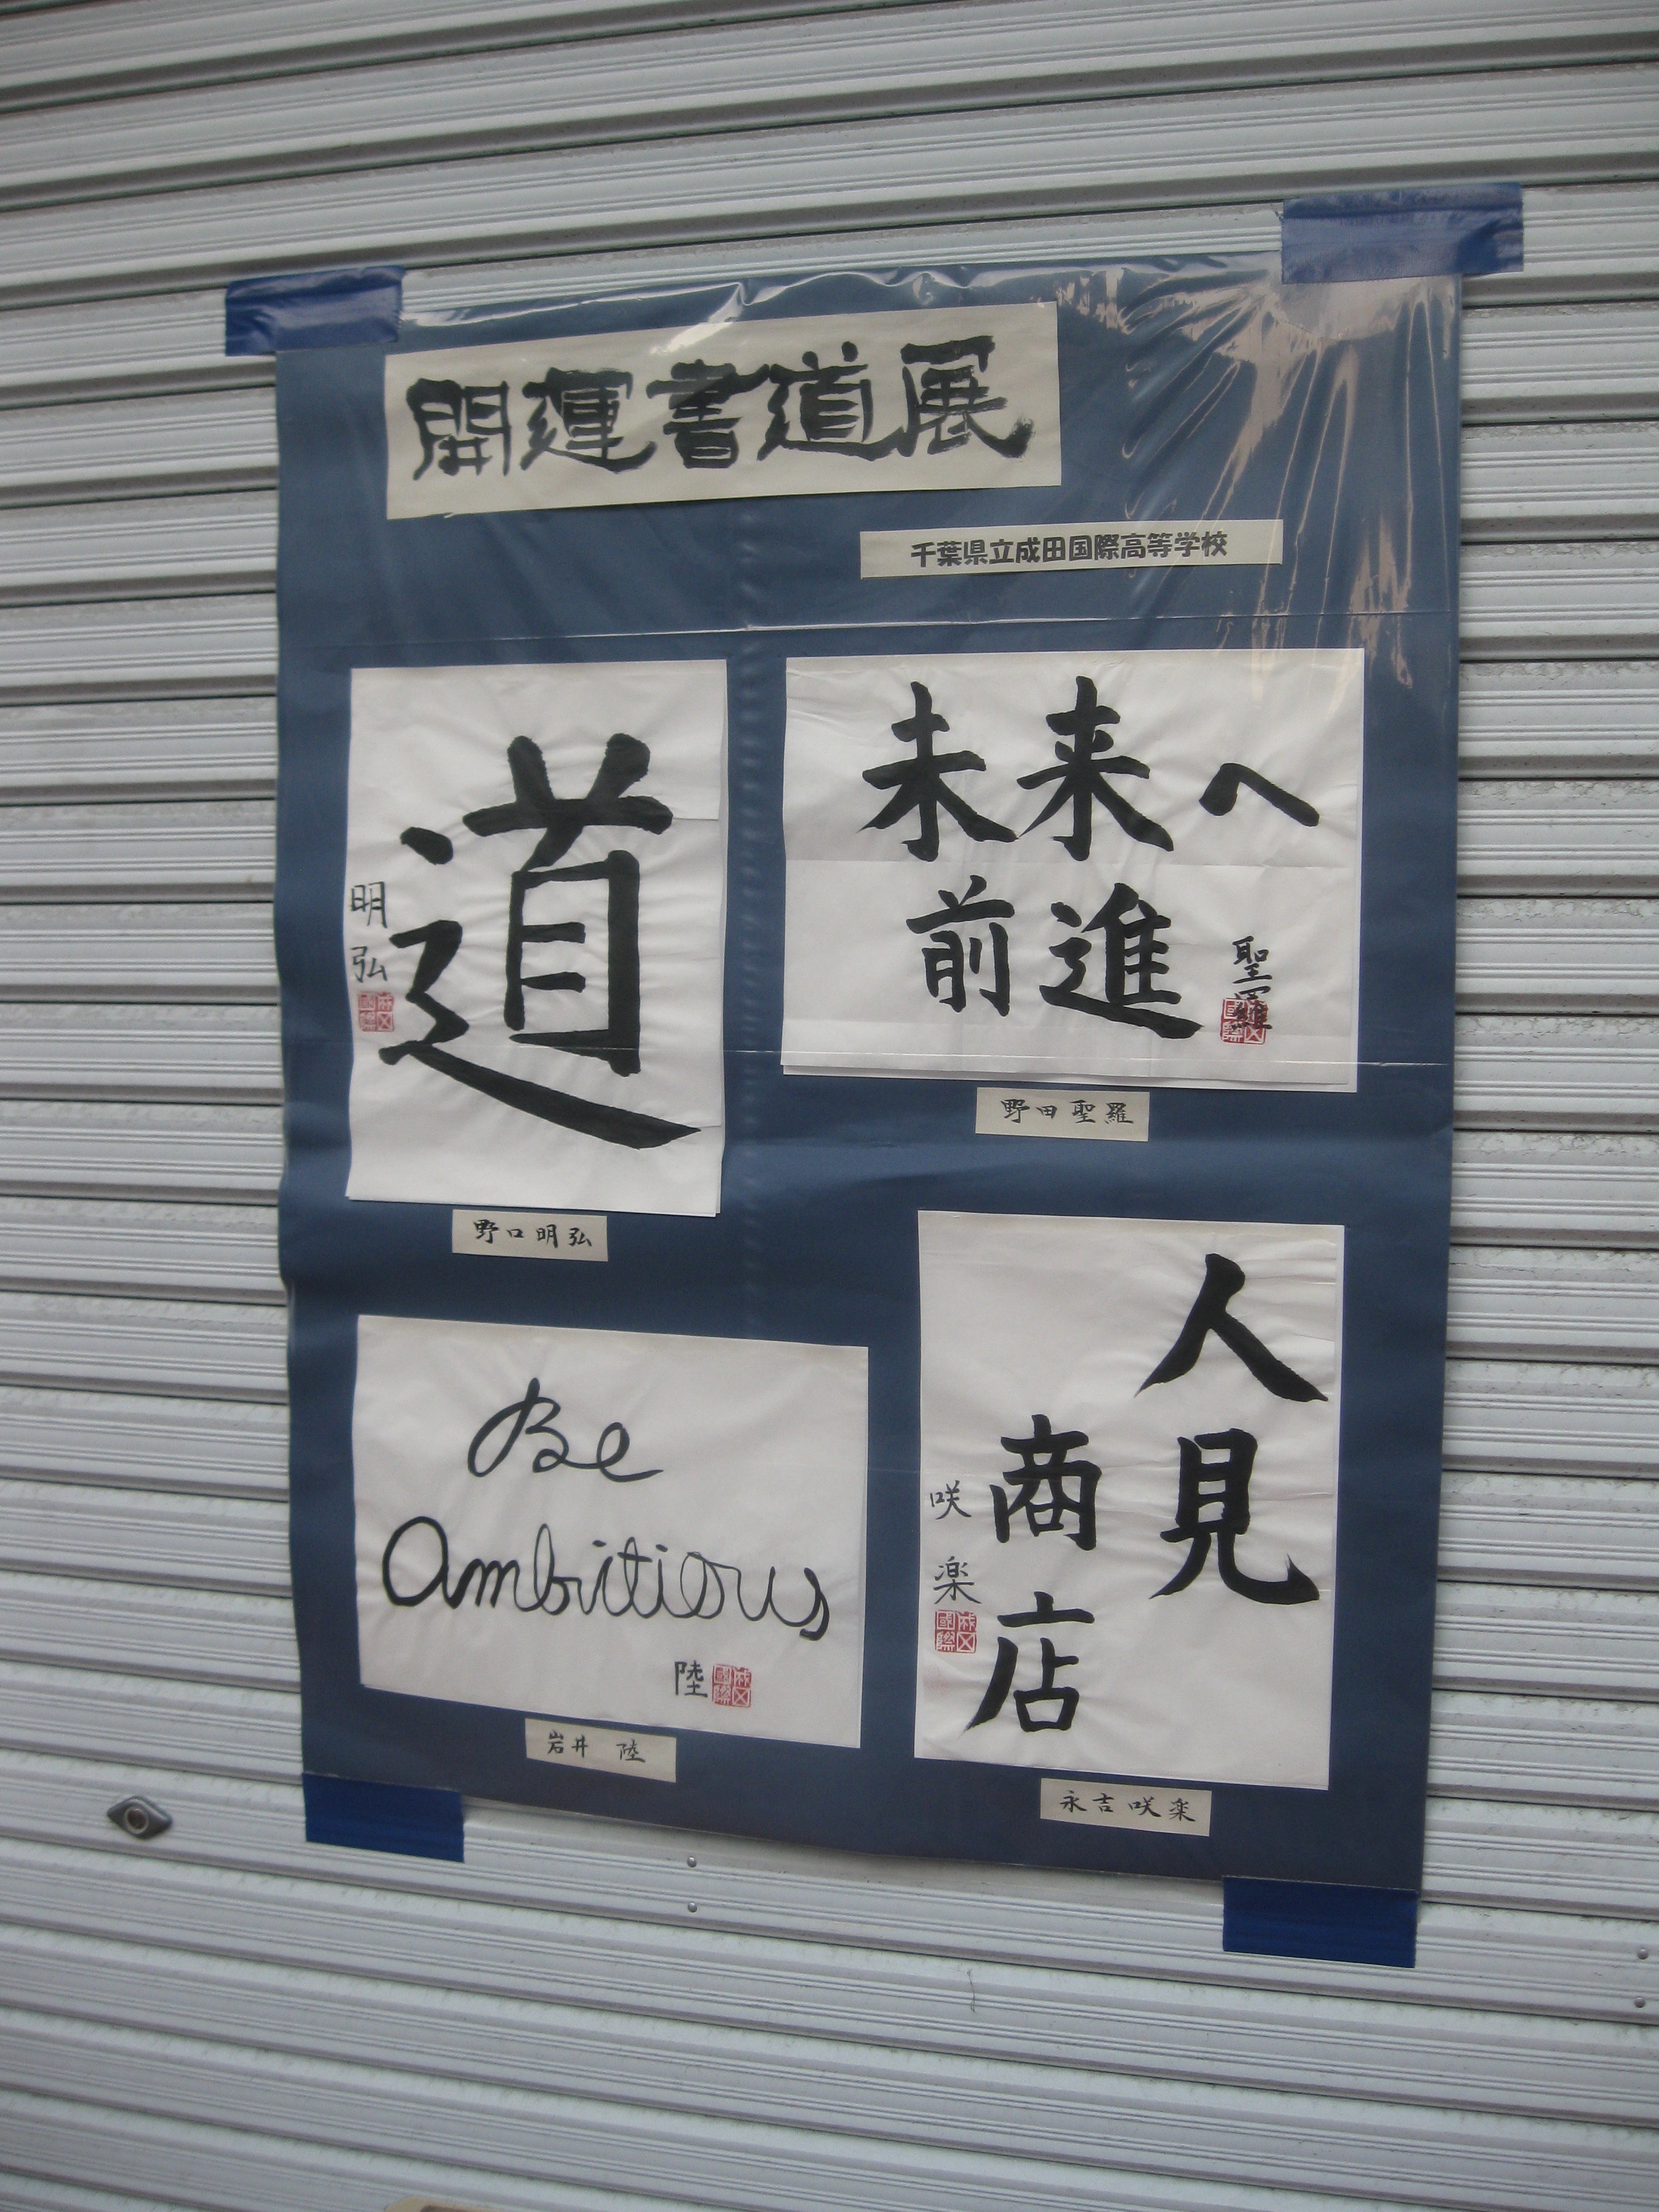 開運書道展
千葉県立成田国際高等学校
道
明弘
野口明弘
未来へ
前進
聖羅
野田聖羅
Be
Ambitious
陸
岩井 陸
人見
商店
咲楽
永吉咲楽